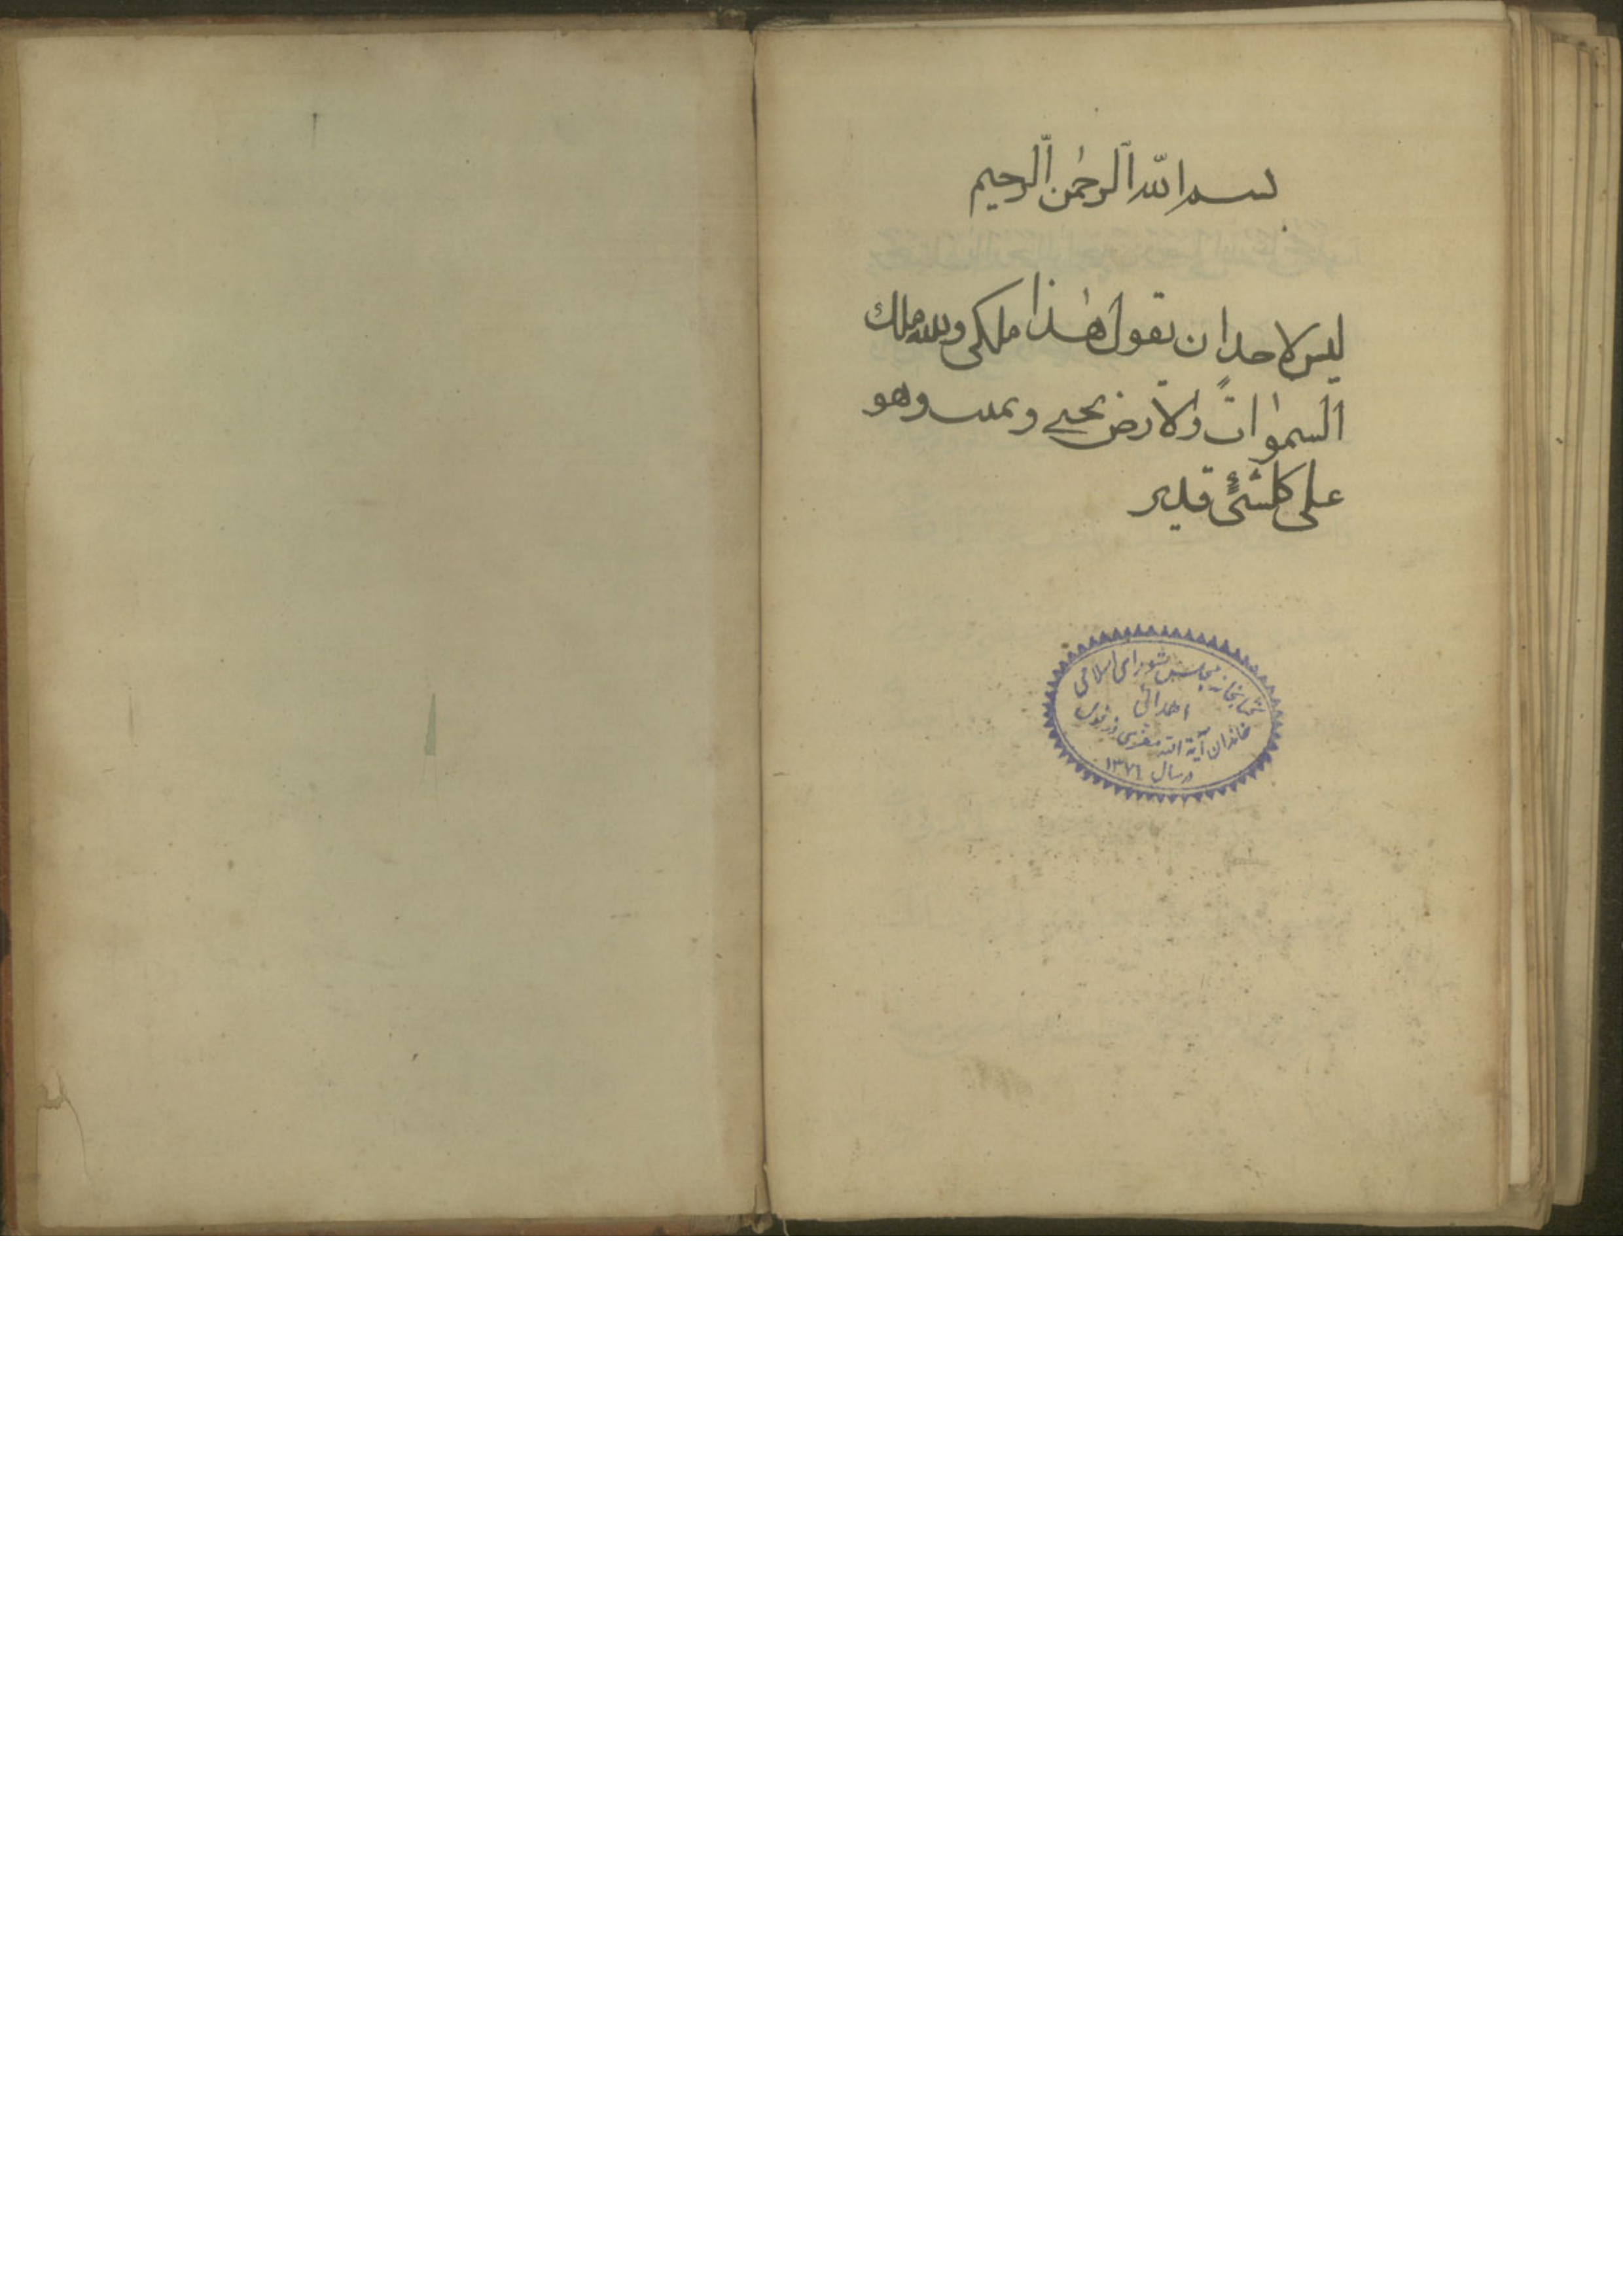 بسم الله الرحمن الرحيم
ليس لاحد ان يقول هذا ملكى ولله ملك
السموات والارض يحيى ويميت وهو
على كلشئ قدير
كتابخانه مجلس شورای اسلامی
اهدائی
خاندان آیة الله
در سال ۱۳۷۶